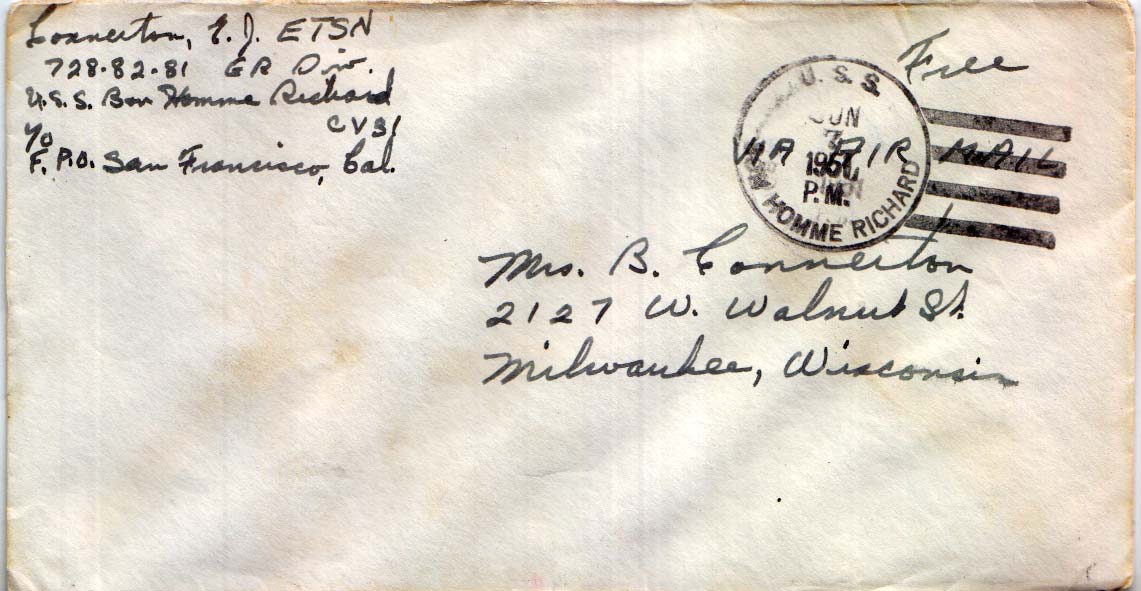 Connerton, E. J. ETSN
728-82-81 ER Div.
U.S.S. Bon Homme Richard
CV31
c/o
F. P.O. San Francisco, Cal.
Free
U. S. S.
JUN
P.M.
HOMME RICHARD
VIA AIR MAIL
Mrs. B. Connerton
2127 W. Walnut St.
Milwaukee, Wisconsin